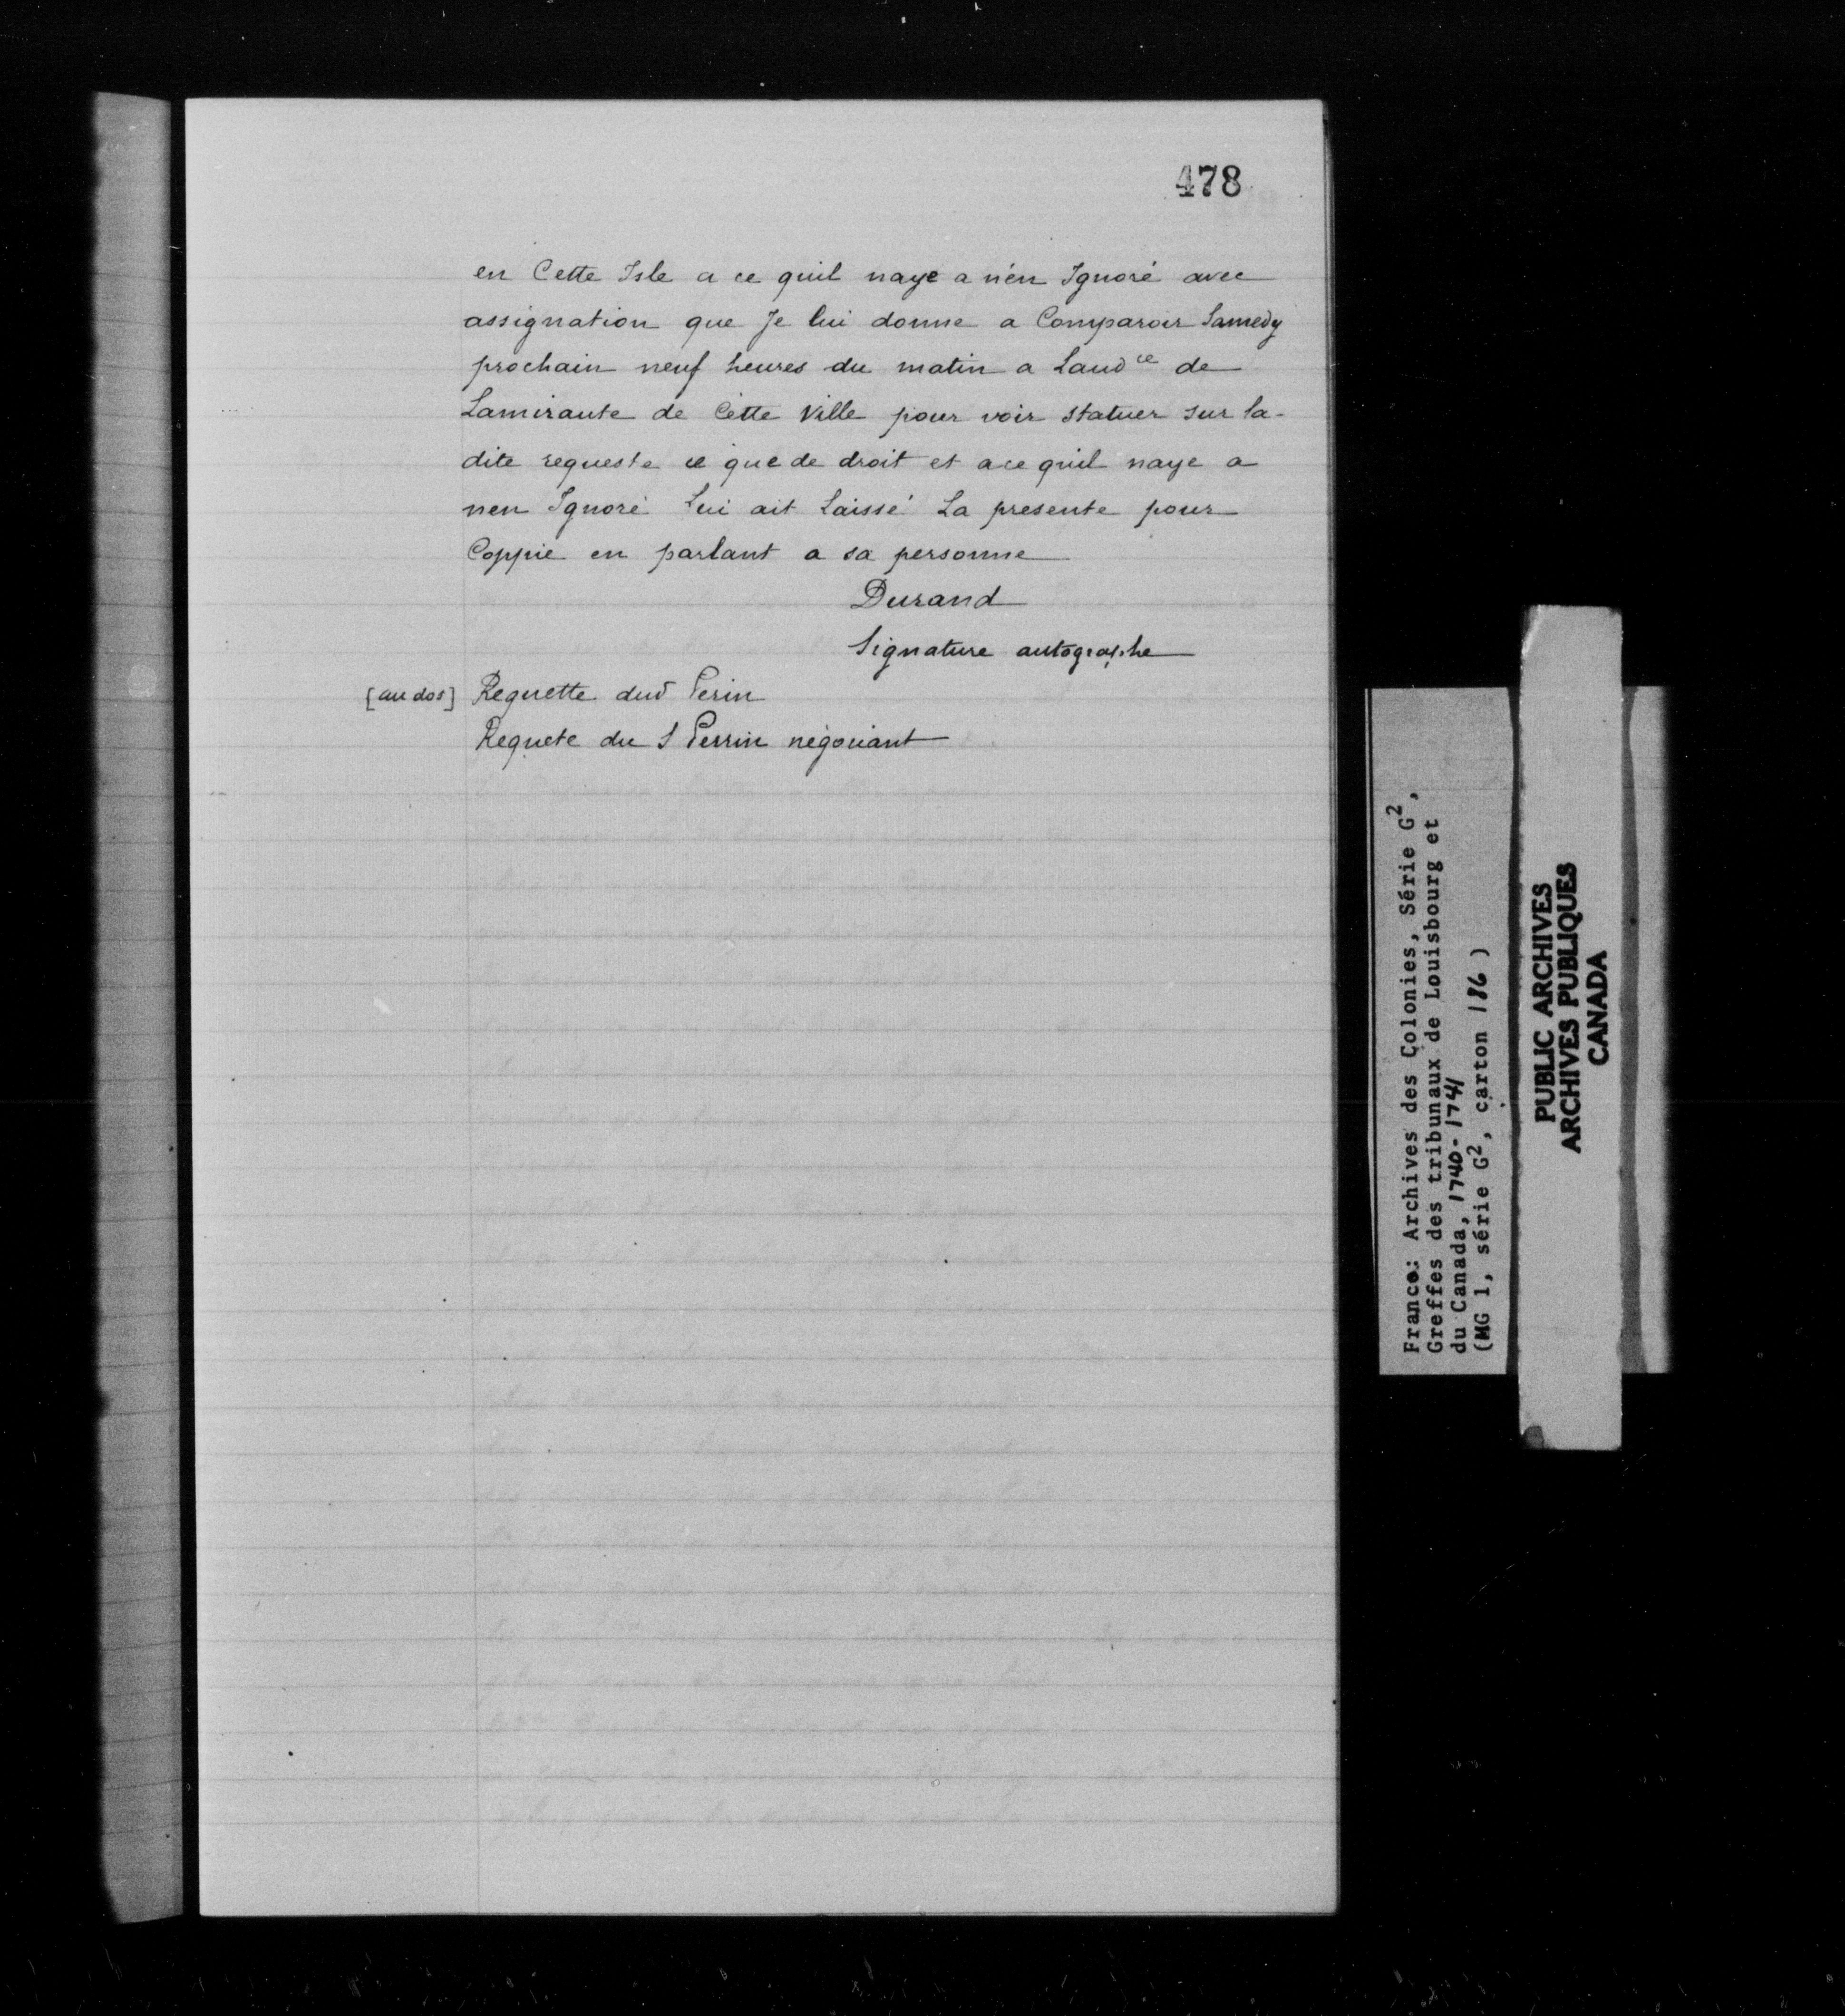 478
en Cette Isle a ce quil naye a n'en Ignoré avec
assignation que Je lui donne a Comparoir Samedy
prochain neuf heures du matin a Laudce de
Lamiraute de Cette Ville pour voir statuer sur la-
dite requeste ce que de droit et ace quil naye a
nen Ignoré Lui ait Laissé La presente pour
Coppie en parlant a sa personne
Durand
Signature autographe
[au dos] Requette dud Perin
Requete du S Perrin négociant
France: Archives des Colonies, Série G2,
Greffes des tribunaux de Louisbourg et
du Canada, 1740-1741
(MG 1, série G2, carton 186)
PUBLIC ARCHIVES
ARCHIVES PUBLIQUES
CANADA